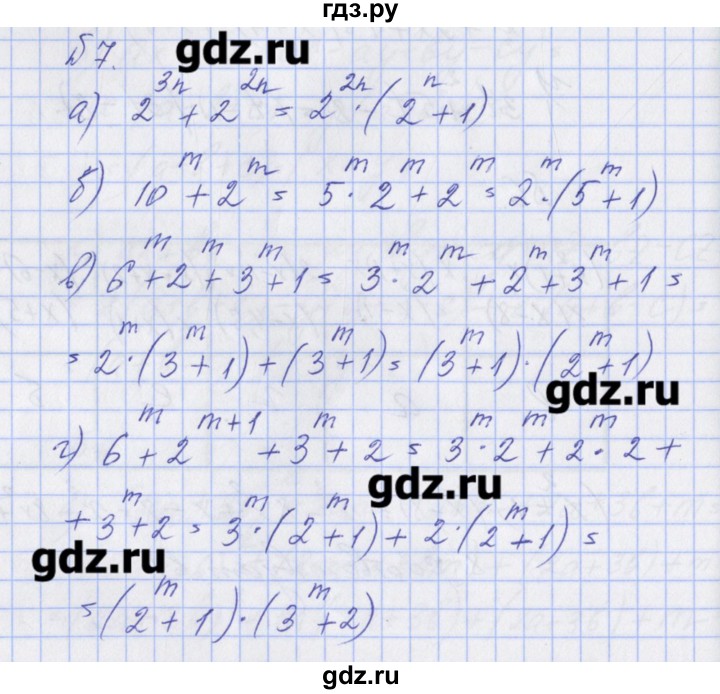 гдз.ру
Б 7. gdz.ru
а) 2^3n + 2^2n = 2^2n · (2^n + 1)
б) 10^m + 2^m = 5^m · 2^m + 2^m = 2^m · (5^m + 1)
в) 6^m + 2^m + 3^m + 1 = 3^m · 2^m + 2^m + 3^m + 1 =
= 2^m · (3^m + 1) + (3^m + 1) = (3^m + 1) · (2^m + 1)
gdz.ru
г) 6^m + 2^m+1 + 3^m + 2 = 3^m · 2^m + 2^m · 2 +
gdz.ru
+ 3^m + 2 = 3^m · (2^m + 1) + 2 · (2^m + 1) =
gdz.ru
= (2^m + 1) · (3^m + 2)
gdz.ru